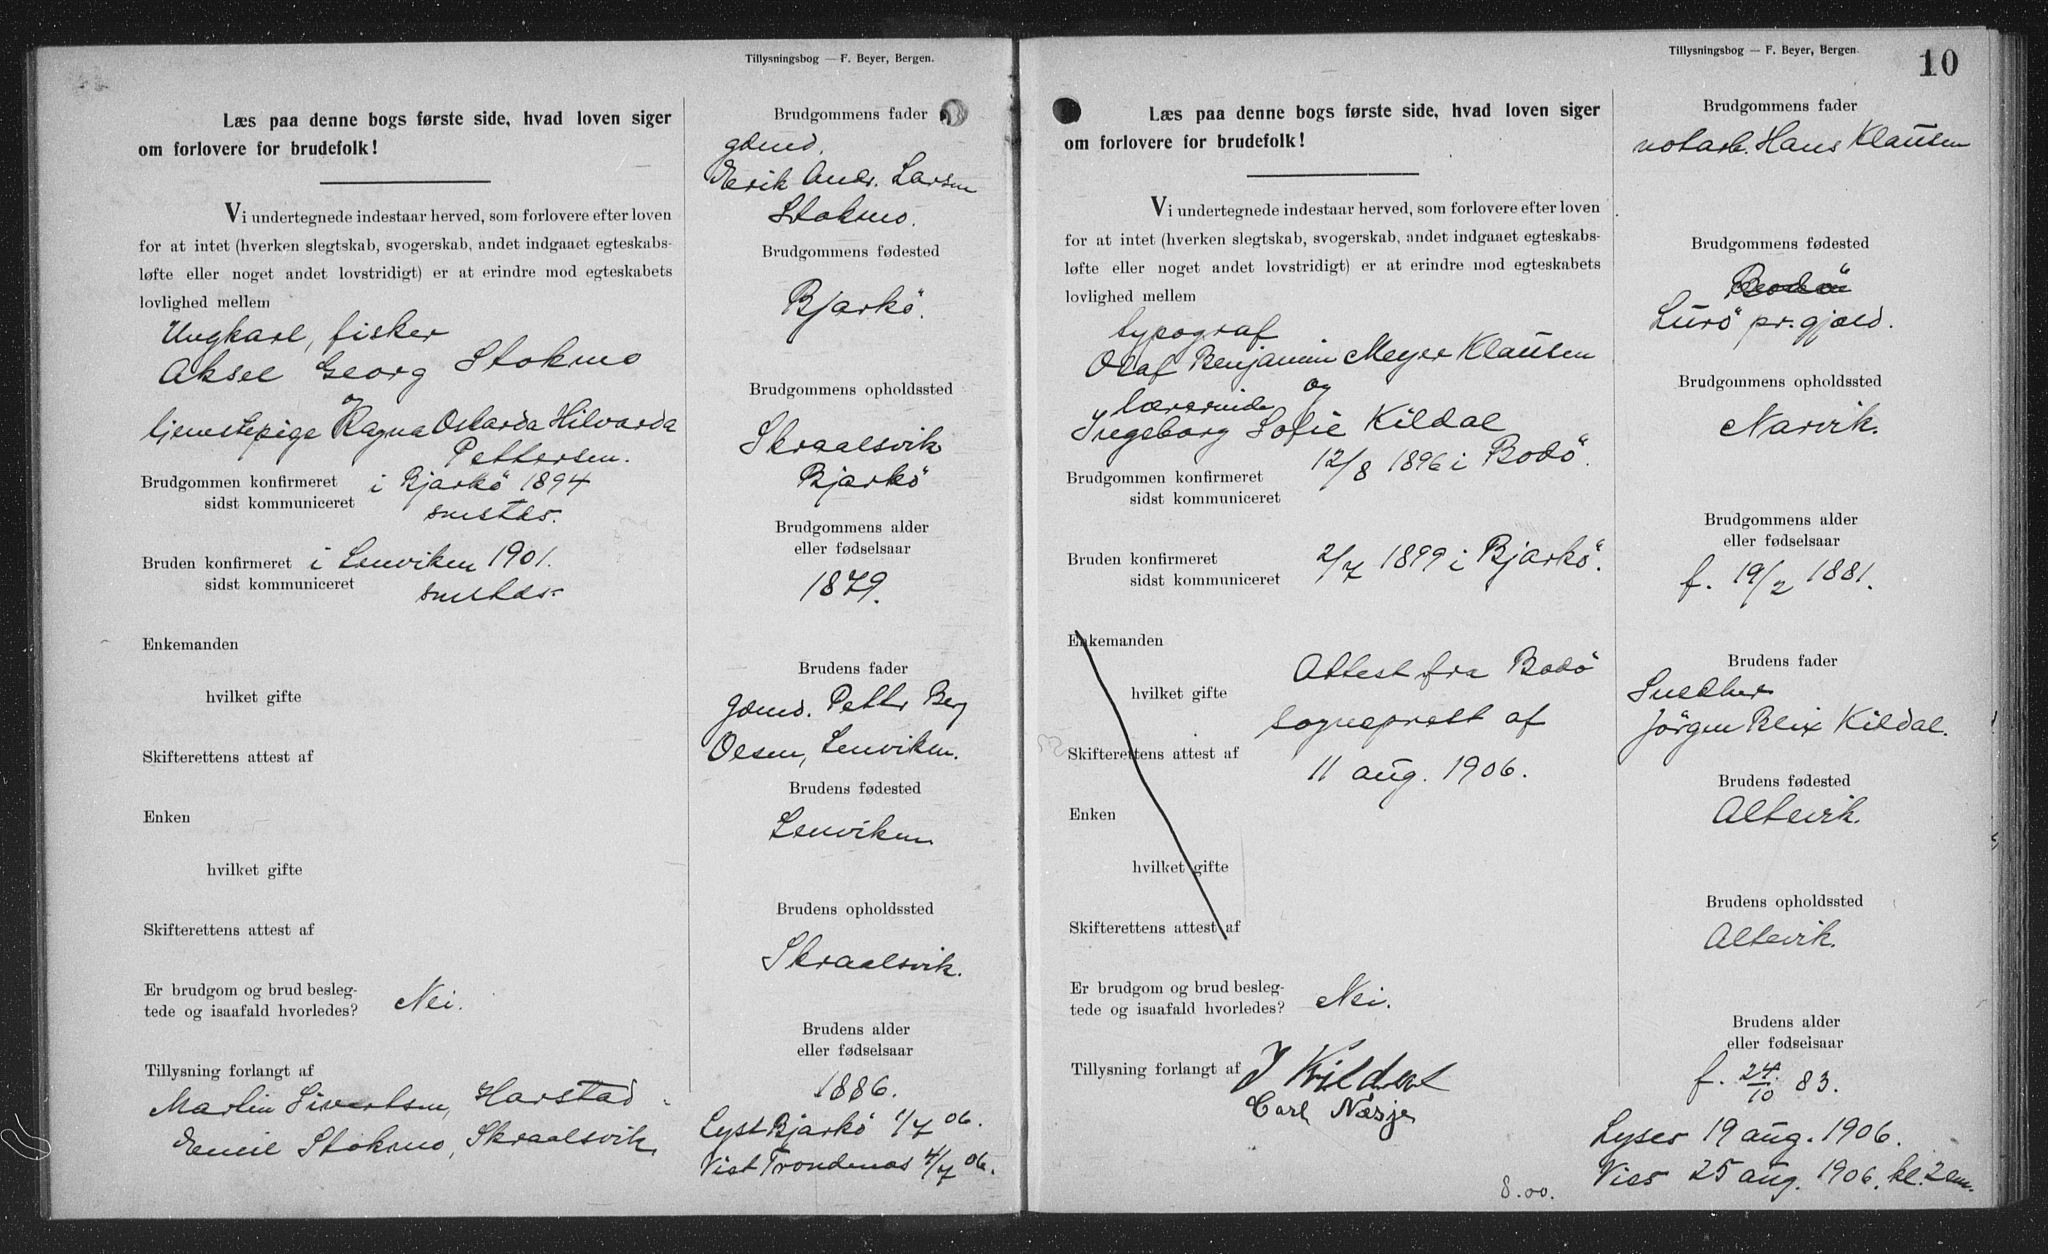 Tillysningsbog — F. Beyer, Bergen.
Læs paa denne bogs første side, hvad loven siger
om forlovere for brudefolk!
Vi undertegnede indestaar herved, som forlovere efter loven
for at intet (hverken slegtskab, svogerskab, andet indgaaet egteskabs-
løfte eller noget andet lovstridigt) er at erindre mod egteskabets
lovlighed mellem
Ungkarl, fisker
Aksel Georg Stokmo
og
tjenestepige Ragna Oskarda Hilvarda
Pettersen.
Brudgommen konfirmeret i Bjarkö 1894
sidst kommuniceret smstds.
Bruden konfirmeret i Lenviken 1901.
sidst kommuniceret smstds.
Enkemanden
hvilket gifte
Skifterettens attest af
Enken
hvilket gifte
Skifterettens attest af
Er brudgom og brud besleg-
tede og isaafald hvorledes? Nei.
Tillysning forlangt af
Martin Sivertsen, Harstad
Emil Stokmo, Skraalsvik
Brudgommens fader
gdmd.
Erik Andr. Larsen
Stokmo.
Brudgommens fødested
Bjarkö.
Brudgommens opholdssted
Skraalsvik
Bjarkö
Brudgommens alder
eller fødselsaar
1879.
Brudens fader
Gdmd. Petter Berg
Olsen, Lenviken.
Brudens fødested
Lenviken
Brudens opholdssted
Skraalsvik.
Brudens alder
eller fødselsaar
1886.
Lyst Bjarkö 1/7 06.
Viet Trondenæs 4/7 06.
Tillysningsbog — F. Beyer, Bergen.
10
Læs paa denne bogs første side, hvad loven siger
om forlovere for brudefolk!
Vi undertegnede indestaar herved, som forlovere efter loven
for at intet (hverken slegtskab, svogerskab, andet indgaaet egteskabs-
løfte eller noget andet lovstridigt) er at erindre mod egteskabets
lovlighed mellem
typograf
Olaf Benjamin Meyer Klausen
og
lærerinde
Ingeborg Sofie Kildal
12/8 1896 i Bodö.
Brudgommen konfirmeret
sidst kommuniceret
Bruden konfirmeret 2/7 1899 i Bjarkö.
sidst kommuniceret
Enkemanden
Attest fra Bodö
hvilket gifte
sogneprest af
Skifterettens attest af
11 aug. 1906.
Enken
hvilket gifte
Skifterettens attest af
Er brudgom og brud besleg-
tede og isaafald hvorledes? Nei.
Tillysning forlangt af J Kildal
Carl Næsje
8.00.
Brudgommens fader
Hans Klausen
Brudgommens fødested
Bodö
Lurö pr.gjeld.
Brudgommens opholdssted
Narvik.
Brudgommens alder
eller fødselsaar
f. 19/2 1881.
Brudens fader
Snedker
Jörgen Blix Kildal.
Brudens fødested
Altevik.
Brudens opholdssted
Altevik.
Brudens alder
eller fødselsaar
f. 24/10 83.
Lyses 19 aug. 1906.
Vies 25 aug. 1906. kl. 2 em.